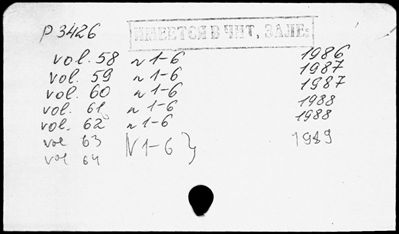 P 3426
ИМЕЕТСЯ В ЧИТ. ЗАЛЕ
vol. 58 n 1-6 1986
vol. 59 n 1-6 1987
vol. 60 n 1-6 1987
vol. 61 n 1-6 1988
vol. 62 n 1-6 1988
vol 63 N 1-6 } 1989
vol 64